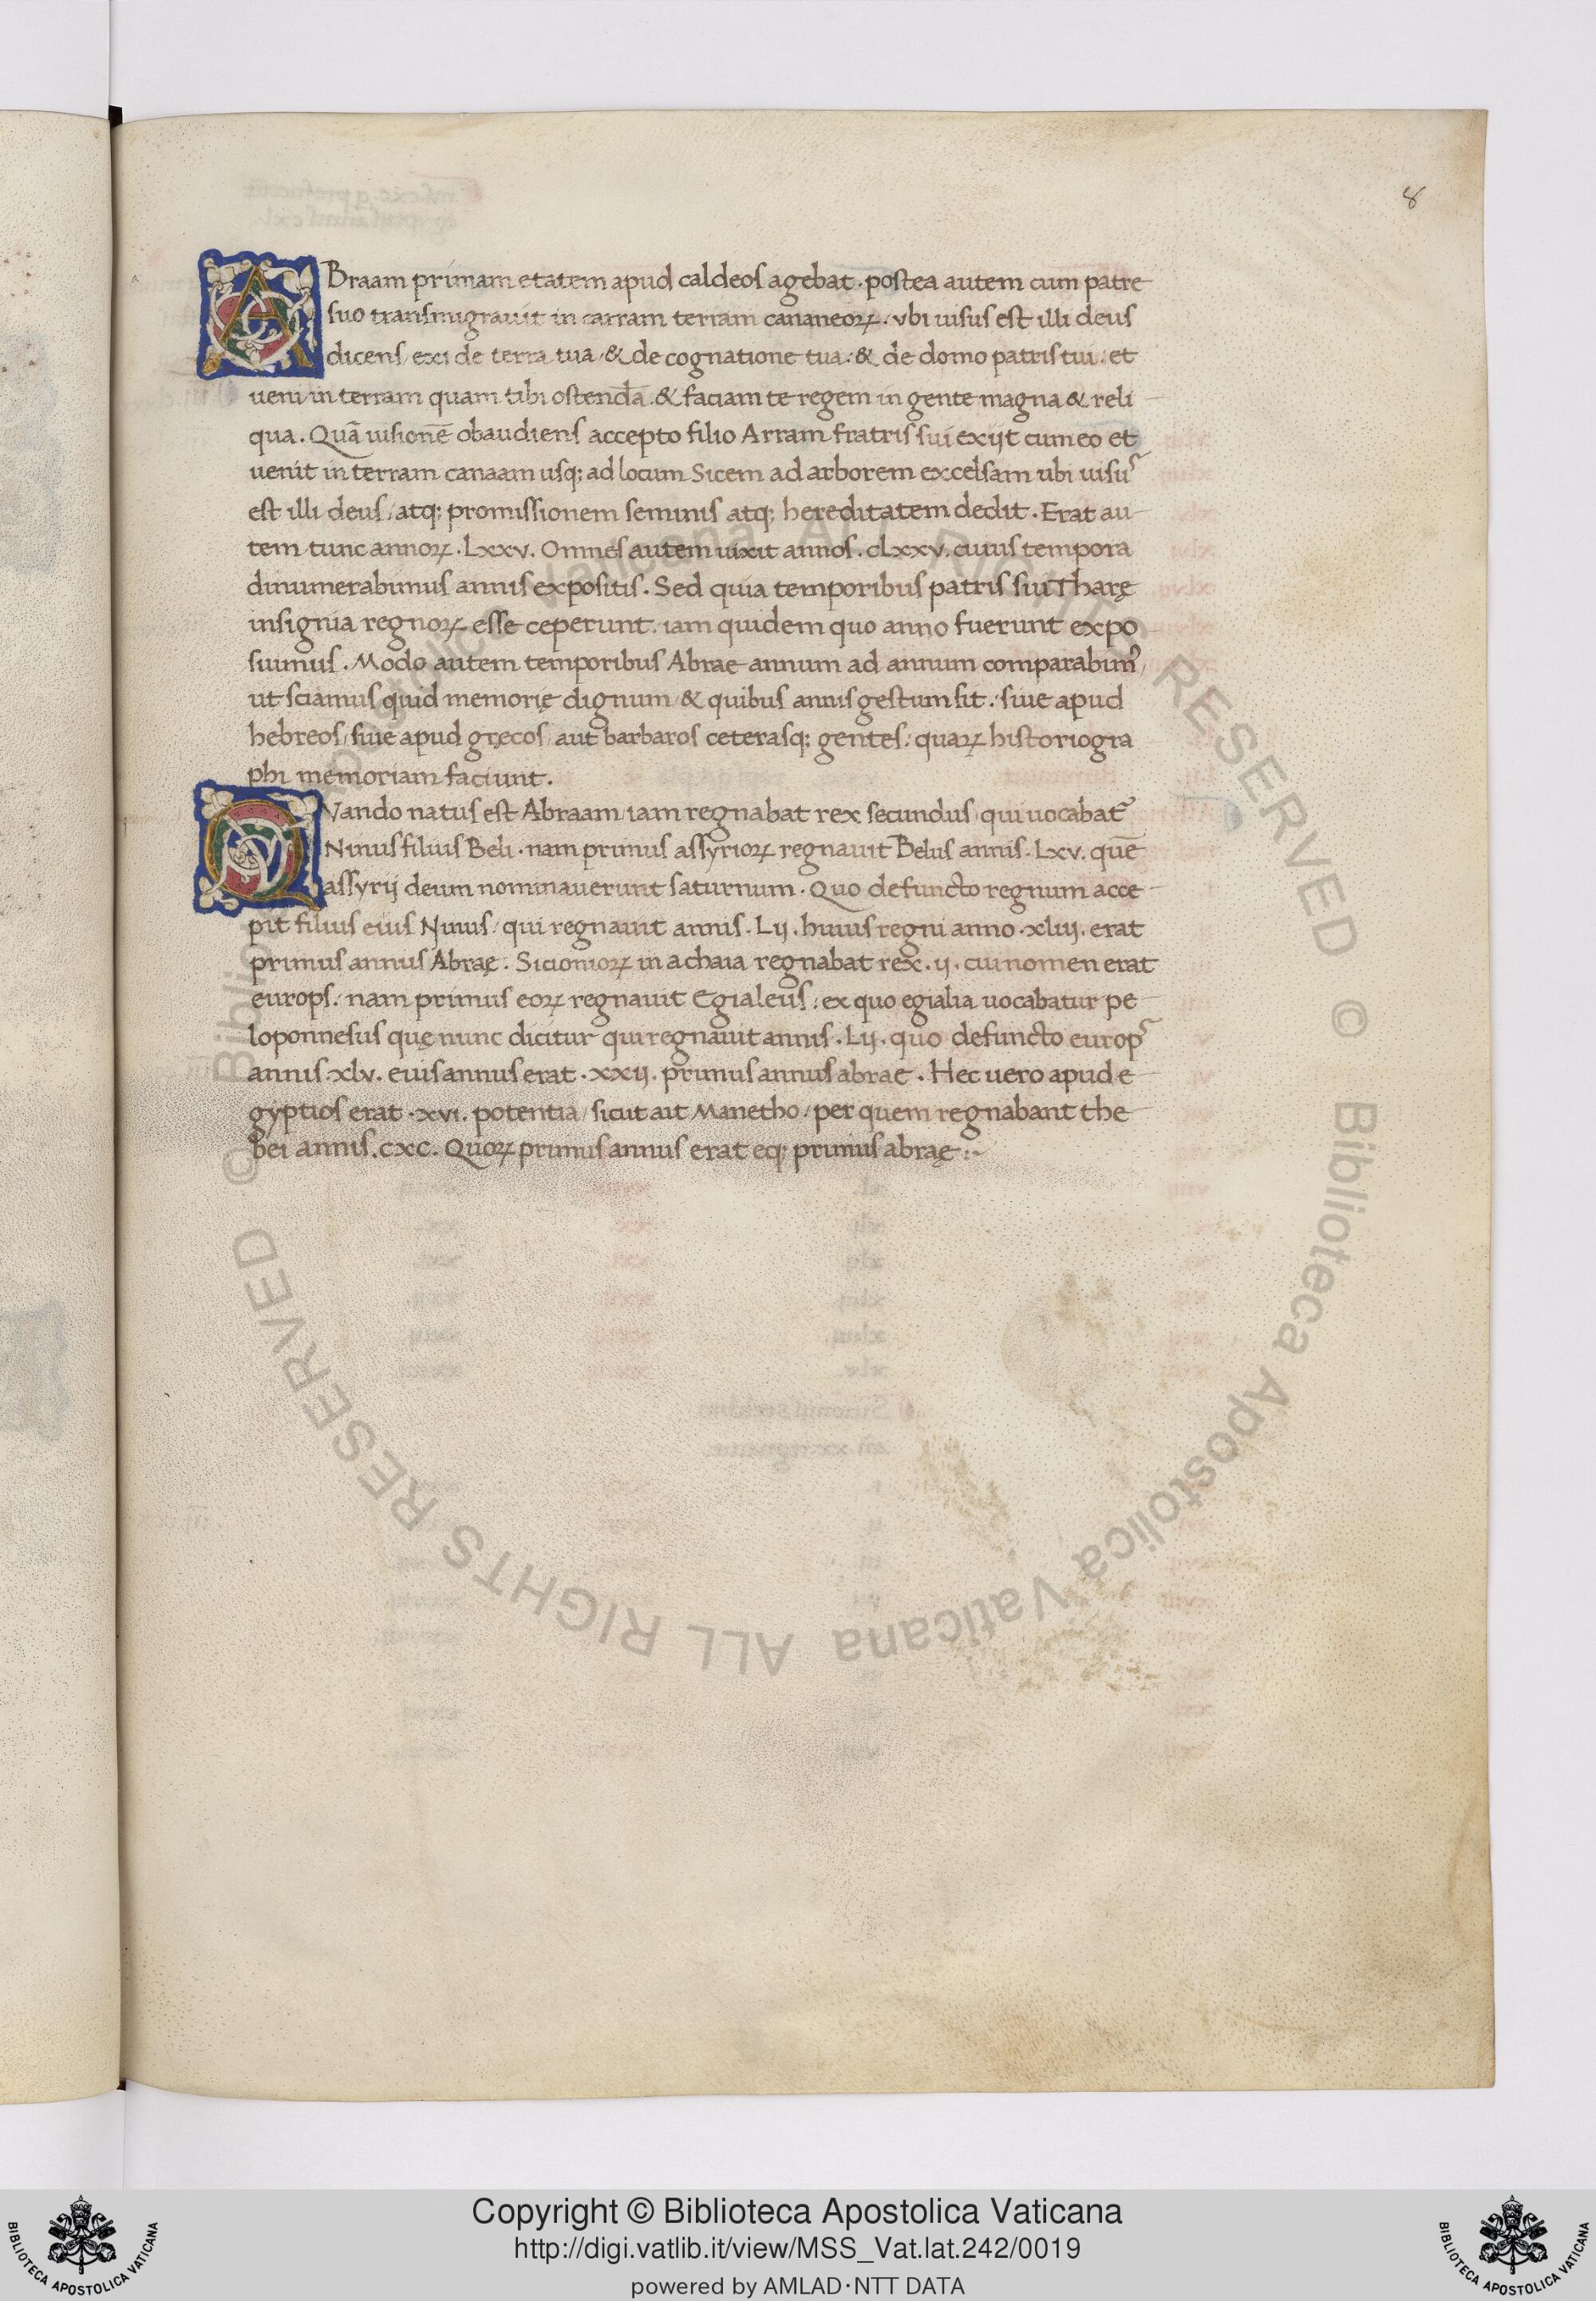 8
ABraam primam etatem apud caldeos agebat · postea autem cum patre
suo transmigrauit in carram terram cananeoꝝ · vbi uisus est illi deus
dicens / exi de terra tua / & de cognatione tua : & de domo patris tui : et
ueni in terram quam tibi ostendā . & faciam te regem in gente magna & reli
qua . Quā uisionē obaudiens accepto filio Arram fratris sui exijt cum eo et
uenit in terram canaam usq; ad locum Sicem ad arborem excelsam ubi uisuˢ
est illi deus / atq; promissionem seminis atq; hereditatem dedit . Erat au
tem tunc annoꝝ . Lxxv . Omnes autem uixit annos . cLxxv . cuius tempora
dinumerabimus annis expositis . Sed quia temporibus patris sui Tharę
insignia regnoꝝ esse ceperunt . iam quidem quo anno fuerunt expo
suimus . Modo autem temporibus Abrae annum ad annum comparabimꝰ
ut sciamus quid memorię dignum / & quibus annis gestum sit . / siue apud
hebreos / siue apud gręcos / aut barbaros ceterasq; gentes / quaꝝ historiogra
phi memoriam faciunt .
QVando natus est Abraam / iam regnabat rex secundus / qui uocabat᷑
Ninus filius Beli . nam primus assyrioꝝ regnauit Belus annis . Lxv . quē
assyrij deum nominauerunt saturnum . Quo defuncto regnum acce
pit filius eius Ninus / qui regnauit annis . Lij . huius regni anno . xliij . erat
primus annus Abraę . Sicionioꝝ in achaia regnabat rex . ij . cui nomen erat
europs . / nam primus eoꝝ regnauit Egialeus / ex quo egialia uocabatur pe
loponnesus quę nunc dicitur qui regnauit annis . Lij . quo defuncto europˢ
annis xlv . euis annus erat . xxij . primus annus abrae . Hec uero apud e
gyptios erat . xvi . potentia / sicut ait Manetho / per quem regnabant the
bei annis . cxc . Quoꝝ primus annus erat eq; primus abraę :~
© Biblioteca Apostolica Vaticana ALL RIGHTS RESERVED © Biblioteca Apostolica Vaticana ALL RIGHTS RESERVED
Copyright © Biblioteca Apostolica Vaticana
http://digi.vatlib.it/view/MSS_Vat.lat.242/0019
powered by AMLAD·NTT DATA
BIBLIOTECA APOSTOLICA VATICANA
BIBLIOTECA APOSTOLICA VATICANA